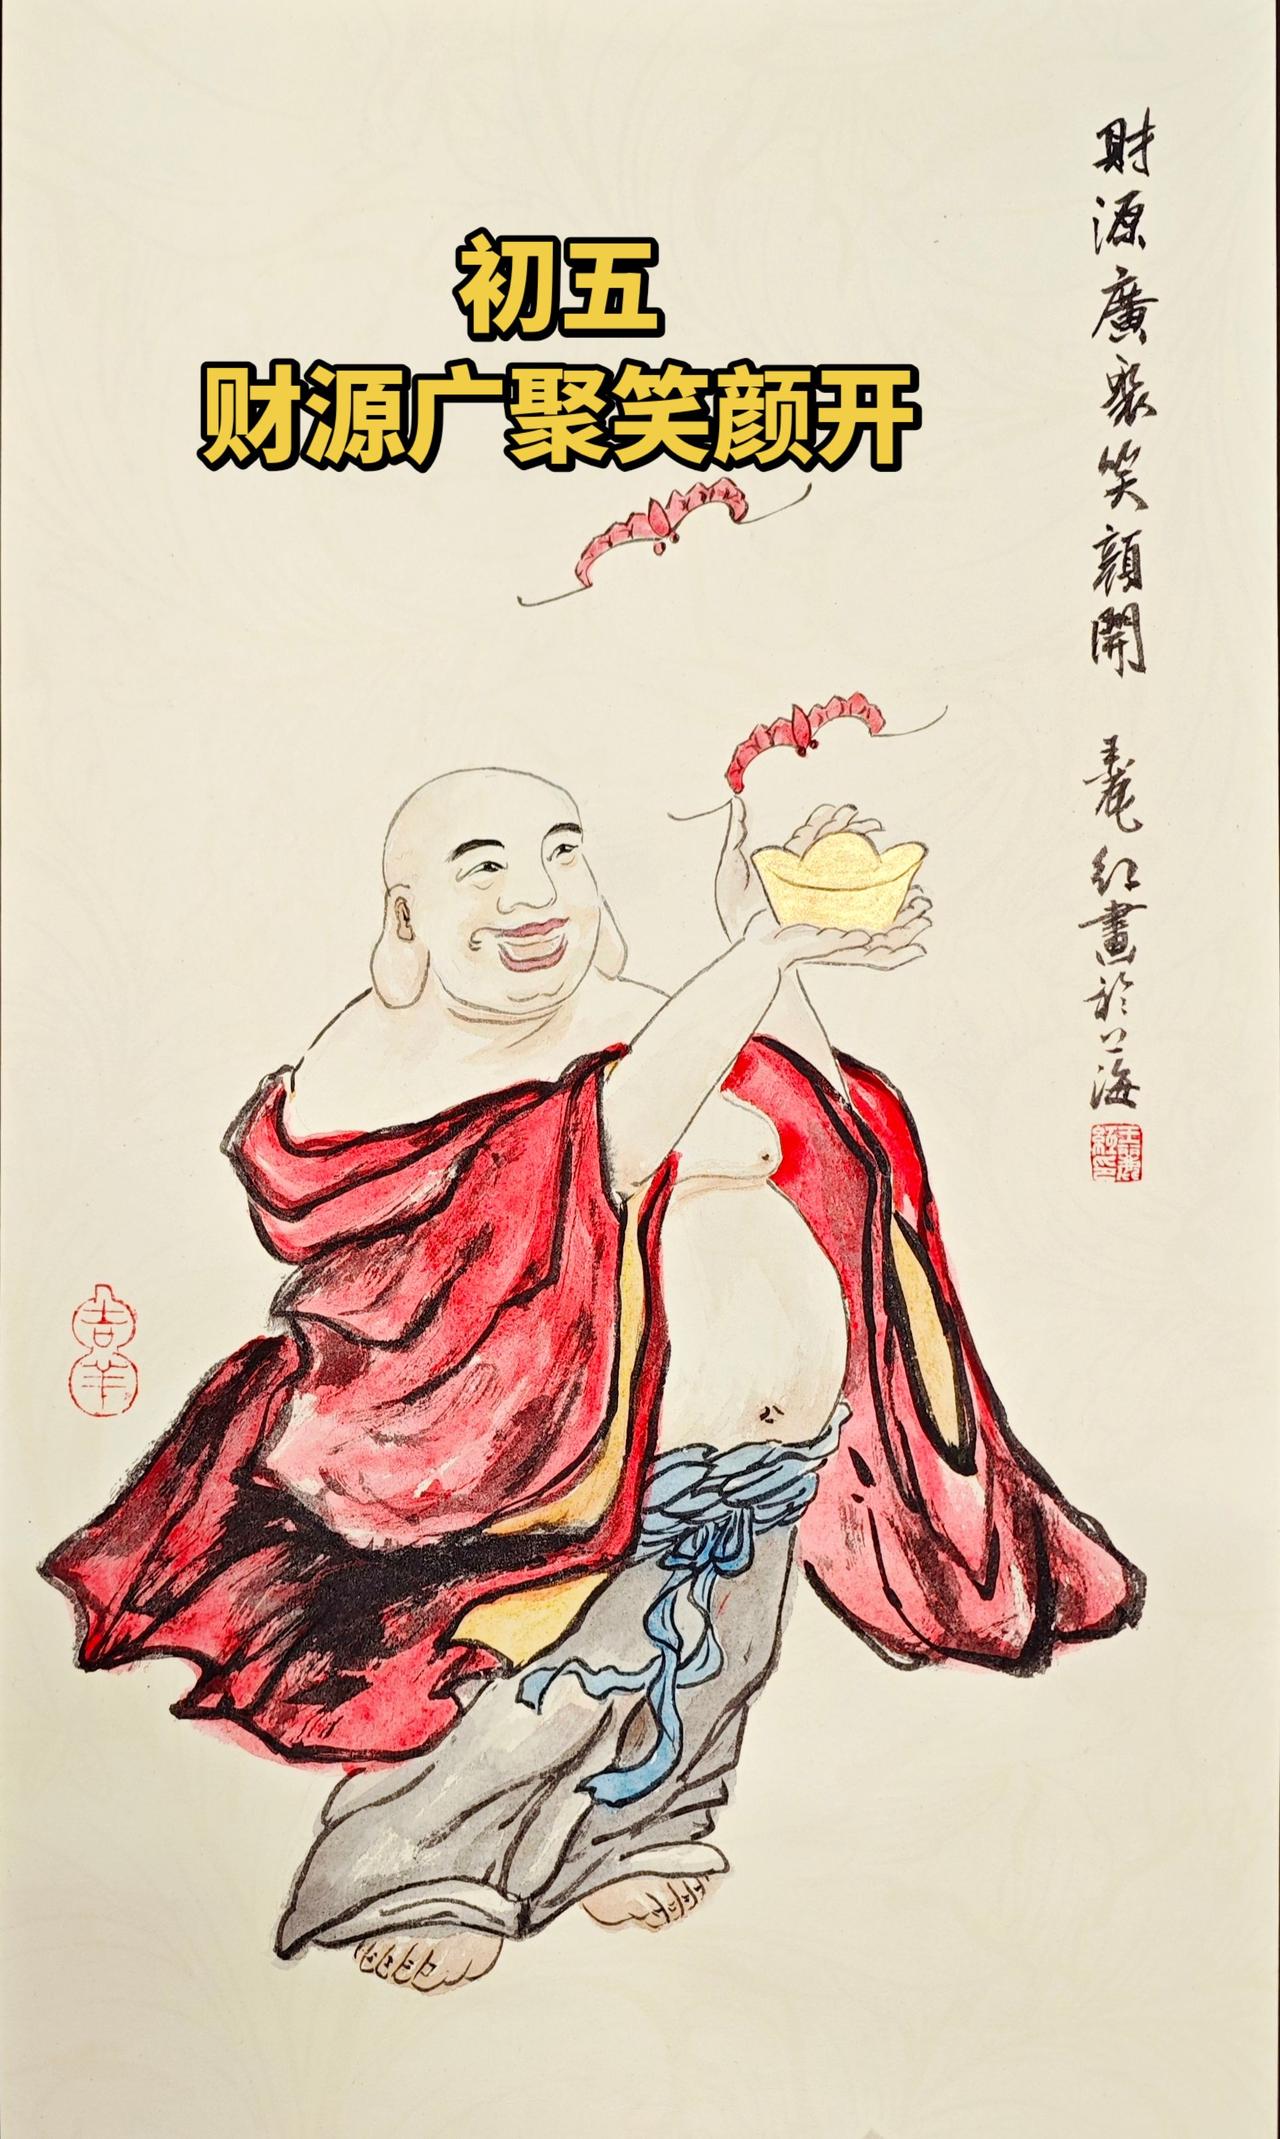 初五
财源广聚笑颜开
財源廣聚笑顔開
王麗紅畫於上海
吉羊